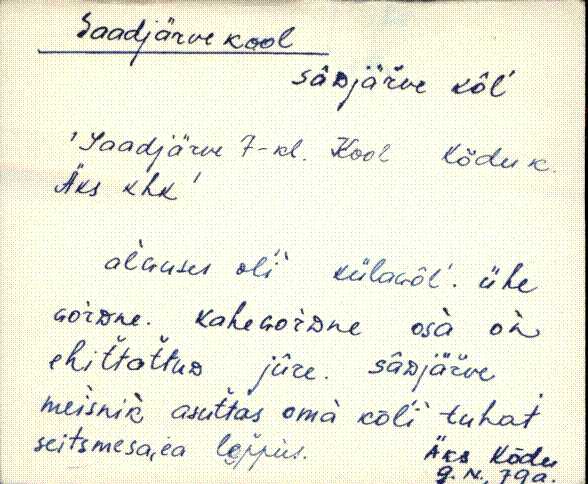 Saadjärve kool
sâᴅjär̆ve kôĺ
'Saadjärve 7-kl. Kool Kõdu k.
Äks khk'
alɢuses oĺi külaɢôĺ. ühe
ɢorᴅne. kaheɢorᴅne osà òn
ehit̆tat̆tuᴅ jûre. sâᴅjär̆ve
meisnik̀ asut̆tas omà kôĺi tuhat
seitsmesajea lep̆pus.
Äks Kõdu
g. N., 79a.